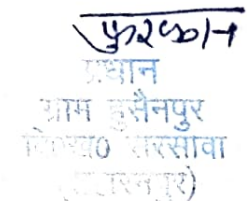 फुरकान
प्रधान
ग्राम हुसैनपुर
वि०ख० सरसावा
(सहारनपुर)